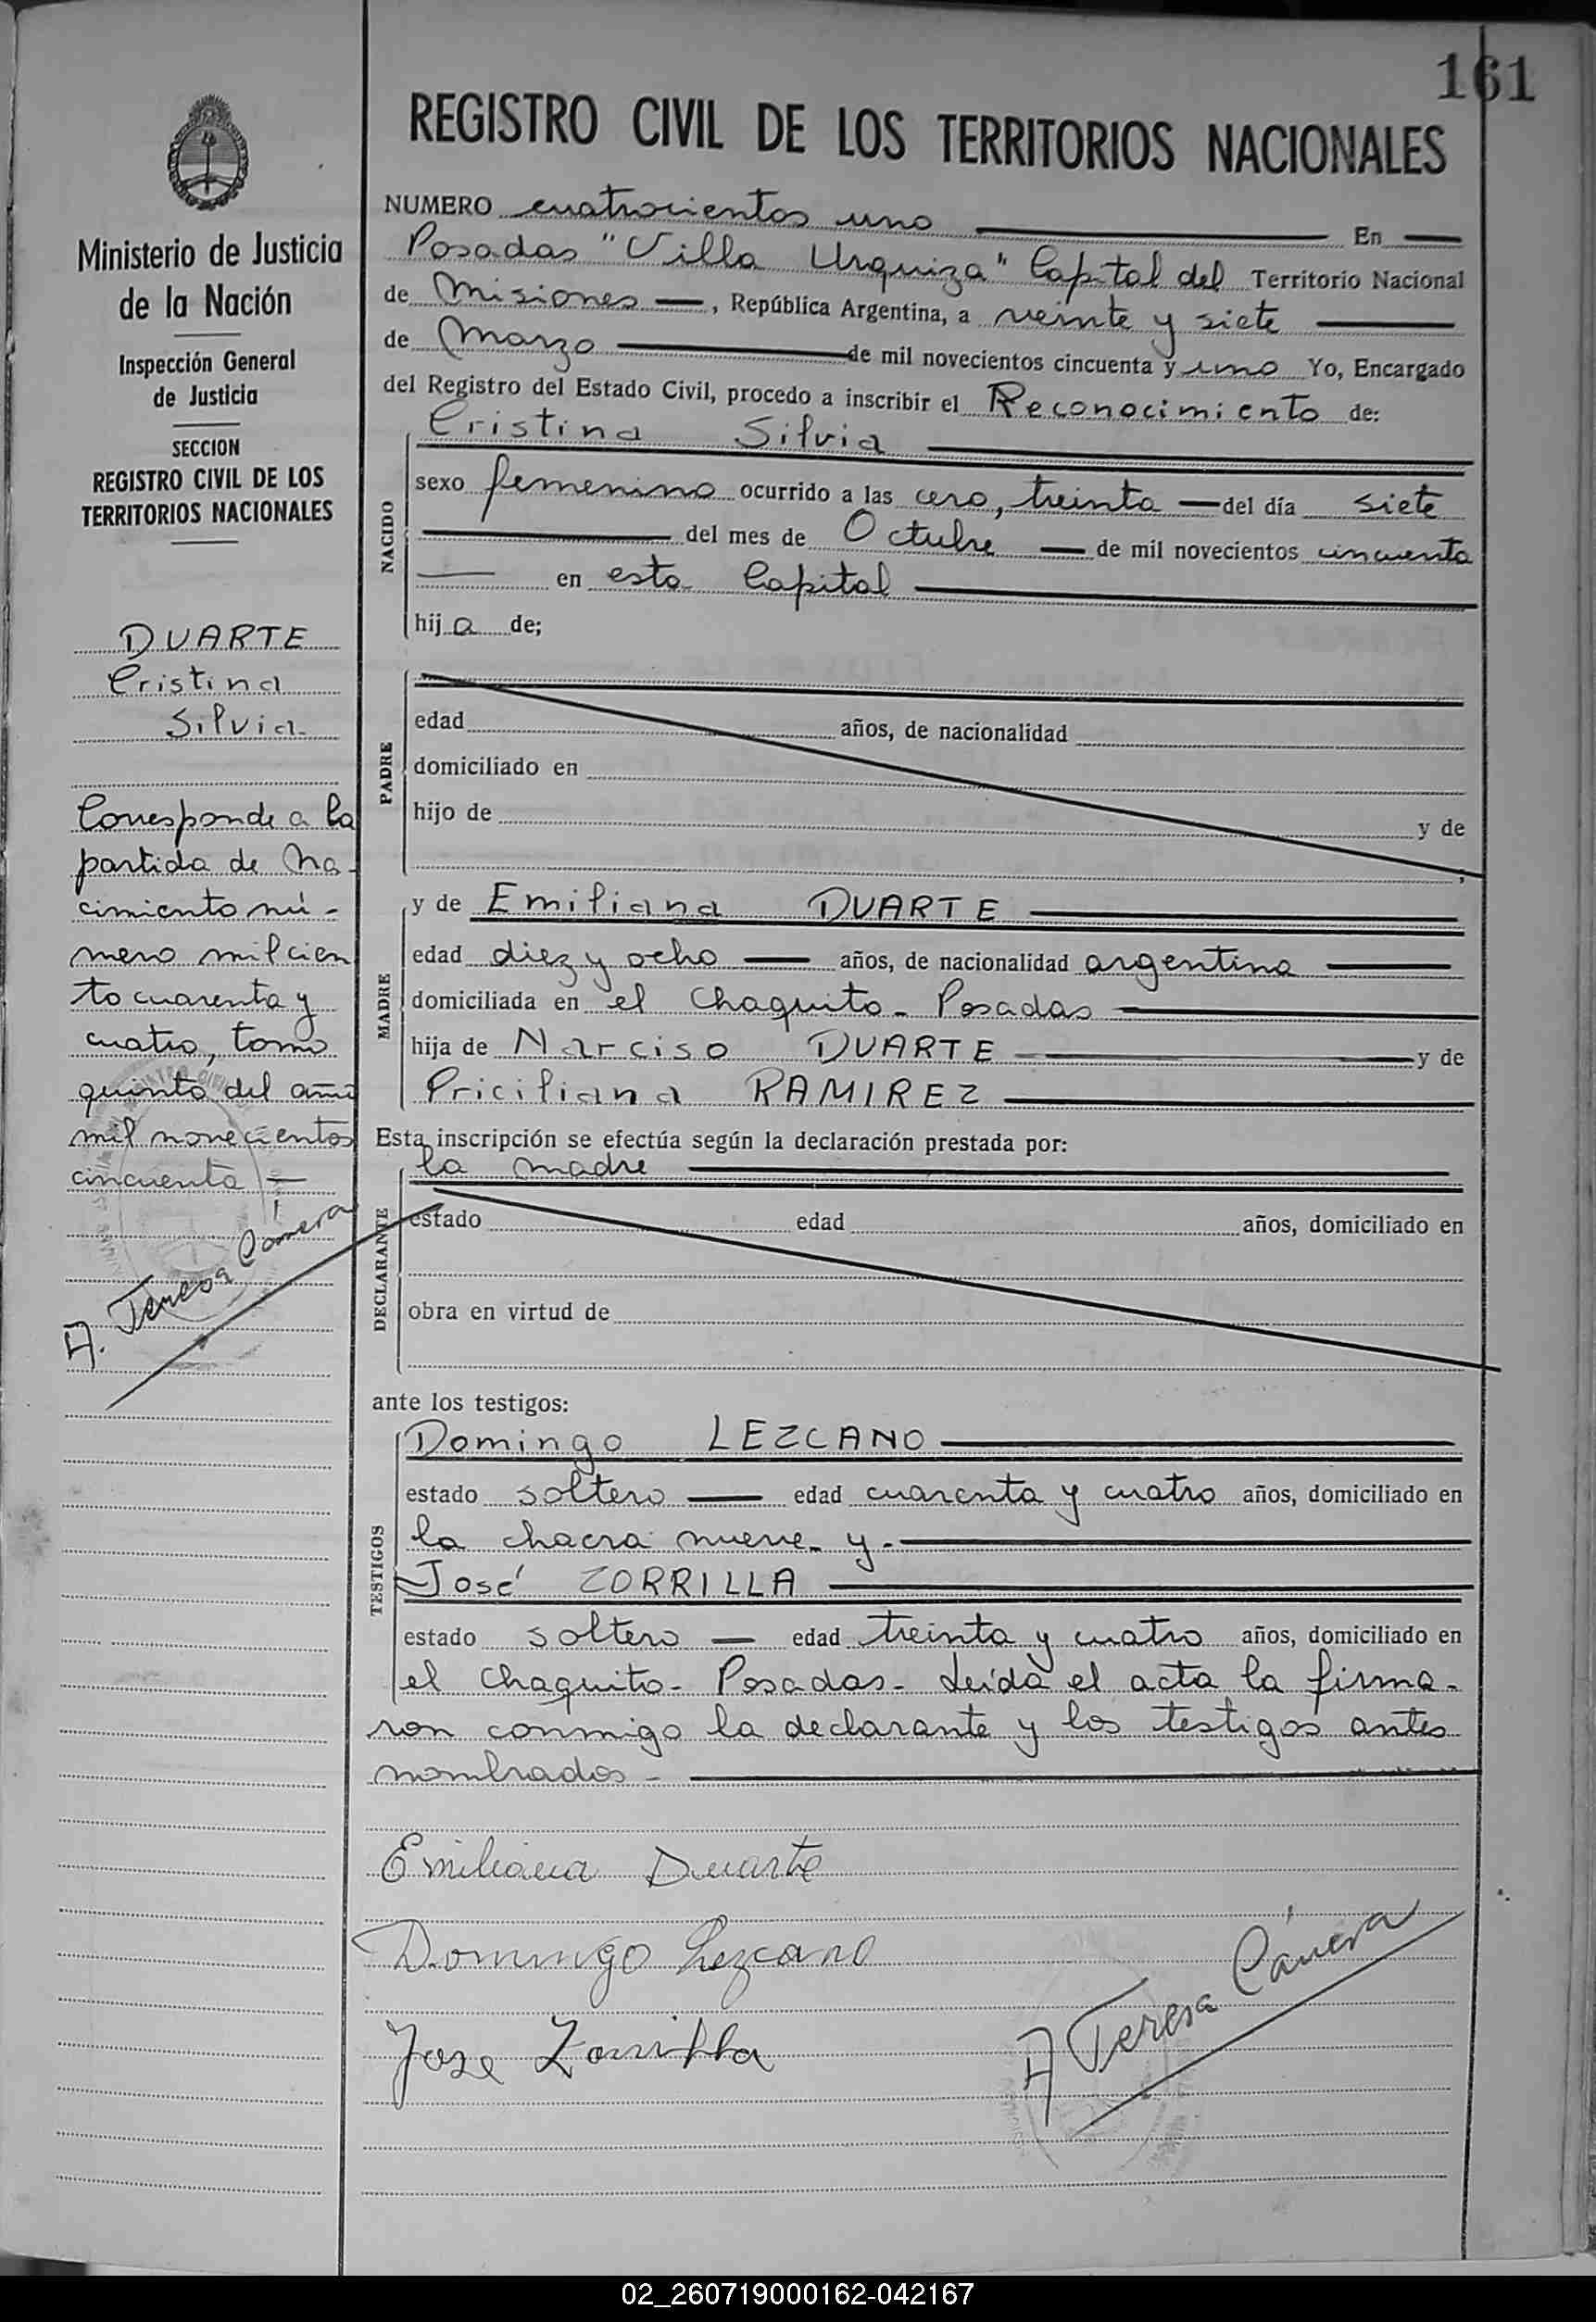 161
REGISTRO CIVIL DE LOS TERRITORIOS NACIONALES
Ministerio de Justicia
de la Nación
Inspección General
de Justicia
SECCION
REGISTRO CIVIL DE LOS
TERRITORIOS NACIONALES
DUARTE
Cristina
Silvia
Corresponde a la
partida de Na-
cimiento nú-
mero mil cien
to cuarenta y
cuatro, tomo
quinto del año
mil novecientos
cincuenta
A. Teresa Cámera
NUMERO cuatrocientos uno En
Posadas "Villa Urquiza" Capital del Territorio Nacional
de Misiones, República Argentina, a veinte y siete
de Marzo de mil novecientos cincuenta y uno Yo, Encargado
del Registro del Estado Civil, procedo a inscribir el Reconocimiento de:
Cristina Silvia
NACIDO
sexo femenino ocurrido a las cero, treinta del día siete
del mes de Octubre de mil novecientos cincuenta
en esta Capital
hija de;
PADRE
edad años, de nacionalidad
domiciliado en
hijo de y de
;
MADRE
y de Emiliana DUARTE
edad diez y ocho años, de nacionalidad argentina
domiciliada en el Chaquito - Posadas
hija de Narciso DUARTE y de
Priciliana RAMIREZ
Esta inscripción se efectúa según la declaración prestada por:
la madre
DECLARANTE
estado edad años, domiciliado en
obra en virtud de
ante los testigos:
TESTIGOS
Domingo LEZCANO
estado soltero edad cuarenta y cuatro años, domiciliado en
la chacra nueve - y -
José ZORRILLA
estado soltero edad treinta y cuatro años, domiciliado en
el Chaquito - Posadas - Leída el acta la firma-
ron conmigo la declarante y los testigos antes
nombrados -
Emiliana Duarte
Domingo Lezcano
Jose Zorrilla
A Teresa Cámera
02_260719000162-042167